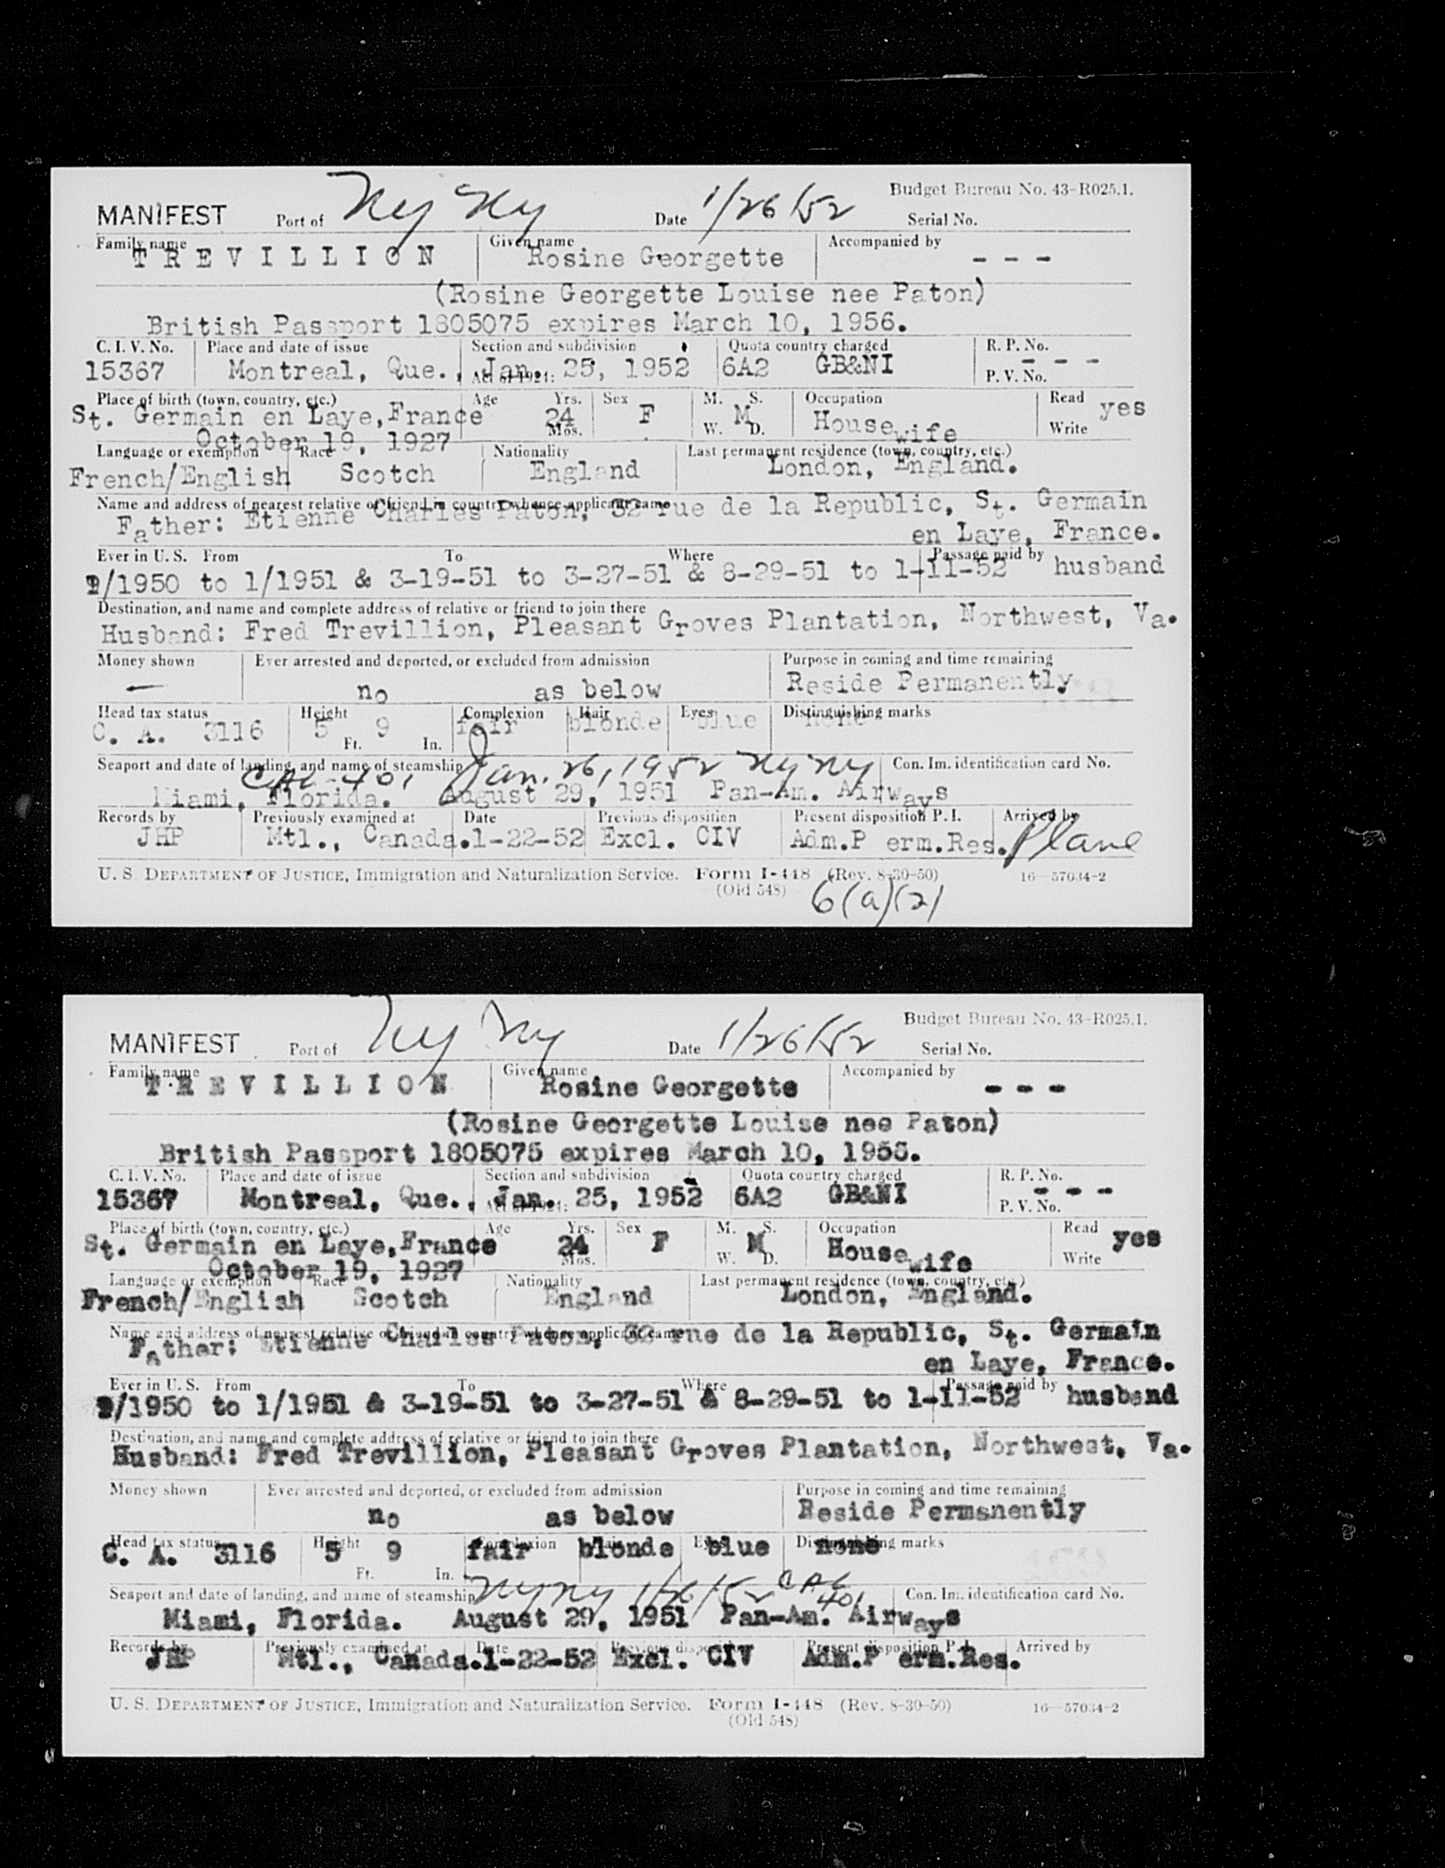 Budget Bureau No. 43-R025.1.
MANIFEST Port of Ny Ny Date 1/26/52 Serial No.
Family name Given name Accompanied by
TREVILLION Rosine Georgette - - -
(Rosine Georgette Louise nee Paton)
British Passport 1805075 expires March 10, 1956.
C. I. V. No. Place and date of issue Section and subdivision Quota country charged R. P. No.
15367 Montreal, Que., Jan. 25, 1952 6A2 GB&NI - - -
Act of 1924: P. V. No.
Place of birth (town, country, etc.) Age Yrs. Sex M. S. Occupation Read
St. Germain en Laye, France 24 F M Housewife yes
Mos. W. D. Write
October 19, 1927
Language or exemption Race Nationality Last permanent residence (town, country, etc.)
French/English Scotch England London, England.
Name and address of nearest relative or friend in country whence applicant came
Father: Etienne Charles Paton, 32 rue de la Republic, St. Germain
en Laye, France.
Ever in U. S. From To Where Passage paid by
/1950 to 1/1951 & 3-19-51 to 3-27-51 & 8-29-51 to 1-11-52 husband
Destination, and name and complete address of relative or friend to join there
Husband: Fred Trevillion, Pleasant Groves Plantation, Northwest, Va.
Money shown Ever arrested and deported, or excluded from admission Purpose in coming and time remaining
— no as below Reside Permanently
Head tax status Height Complexion Hair Eyes Distinguishing marks
C. A. 3116 5 9 fair blonde blue none
Ft. In.
Seaport and date of landing, and name of steamship Con. Im. identification card No.
CAL-401 Jan. 26, 1952 Ny Ny
Miami, Florida. August 29, 1951 Pan-Am. Airways
Records by Previously examined at Date Previous disposition Present disposition P. I. Arrived by
JHP Mtl., Canada. 1-22-52 Excl. CIV Adm.P erm.Res. Plane
U. S. DEPARTMENT OF JUSTICE, Immigration and Naturalization Service. Form I-448 (Rev. 8-30-50) 16—57034-2
(Old 548) 6(a)(2)
Budget Bureau No. 43-R025.1.
MANIFEST Port of Ny Ny Date 1/26/52 Serial No.
Family name Given name Accompanied by
TREVILLION Rosine Georgette - - -
(Rosine Georgette Louise nee Paton)
British Passport 1805075 expires March 10, 1956.
C. I. V. No. Place and date of issue Section and subdivision Quota country charged R. P. No.
15367 Montreal, Que., Jan. 25, 1952 6A2 GB&NI - - -
P. V. No.
Place of birth (town, country, etc.) Age Yrs. Sex M. S. Occupation Read
St. Germain en Laye, France 24 F M Housewife yes
Mos. W. D. Write
October 19, 1927
Language or exemption Race Nationality Last permanent residence (town, country, etc.)
French/English Scotch England London, England.
Name and address of nearest relative or friend in country whence applicant came
Father: Etienne Charles Paton, 32 rue de la Republic, St. Germain
en Laye, France.
Ever in U. S. From To Where Passage paid by
/1950 to 1/1951 & 3-19-51 to 3-27-51 & 8-29-51 to 1-11-52 husband
Destination, and name and complete address of relative or friend to join there
Husband: Fred Trevillion, Pleasant Groves Plantation, Northwest, Va.
Money shown Ever arrested and deported, or excluded from admission Purpose in coming and time remaining
no as below Reside Permanently
Head tax status Height Complexion Hair Eyes Distinguishing marks
C. A. 3116 5 9 fair blonde blue none
Ft. In.
Seaport and date of landing, and name of steamship Con. Im. identification card No.
Ny Ny 1/26/52 CAL 401
Miami, Florida. August 29, 1951 Pan-Am. Airways
Records by Previously examined at Date Previous disposition Present disposition P. I. Arrived by
JHP Mtl., Canada. 1-22-52 Excl. CIV Adm.P erm.Res.
U. S. DEPARTMENT OF JUSTICE, Immigration and Naturalization Service. Form I-448 (Rev. 8-30-50) 16—57034-2
(Old 548)